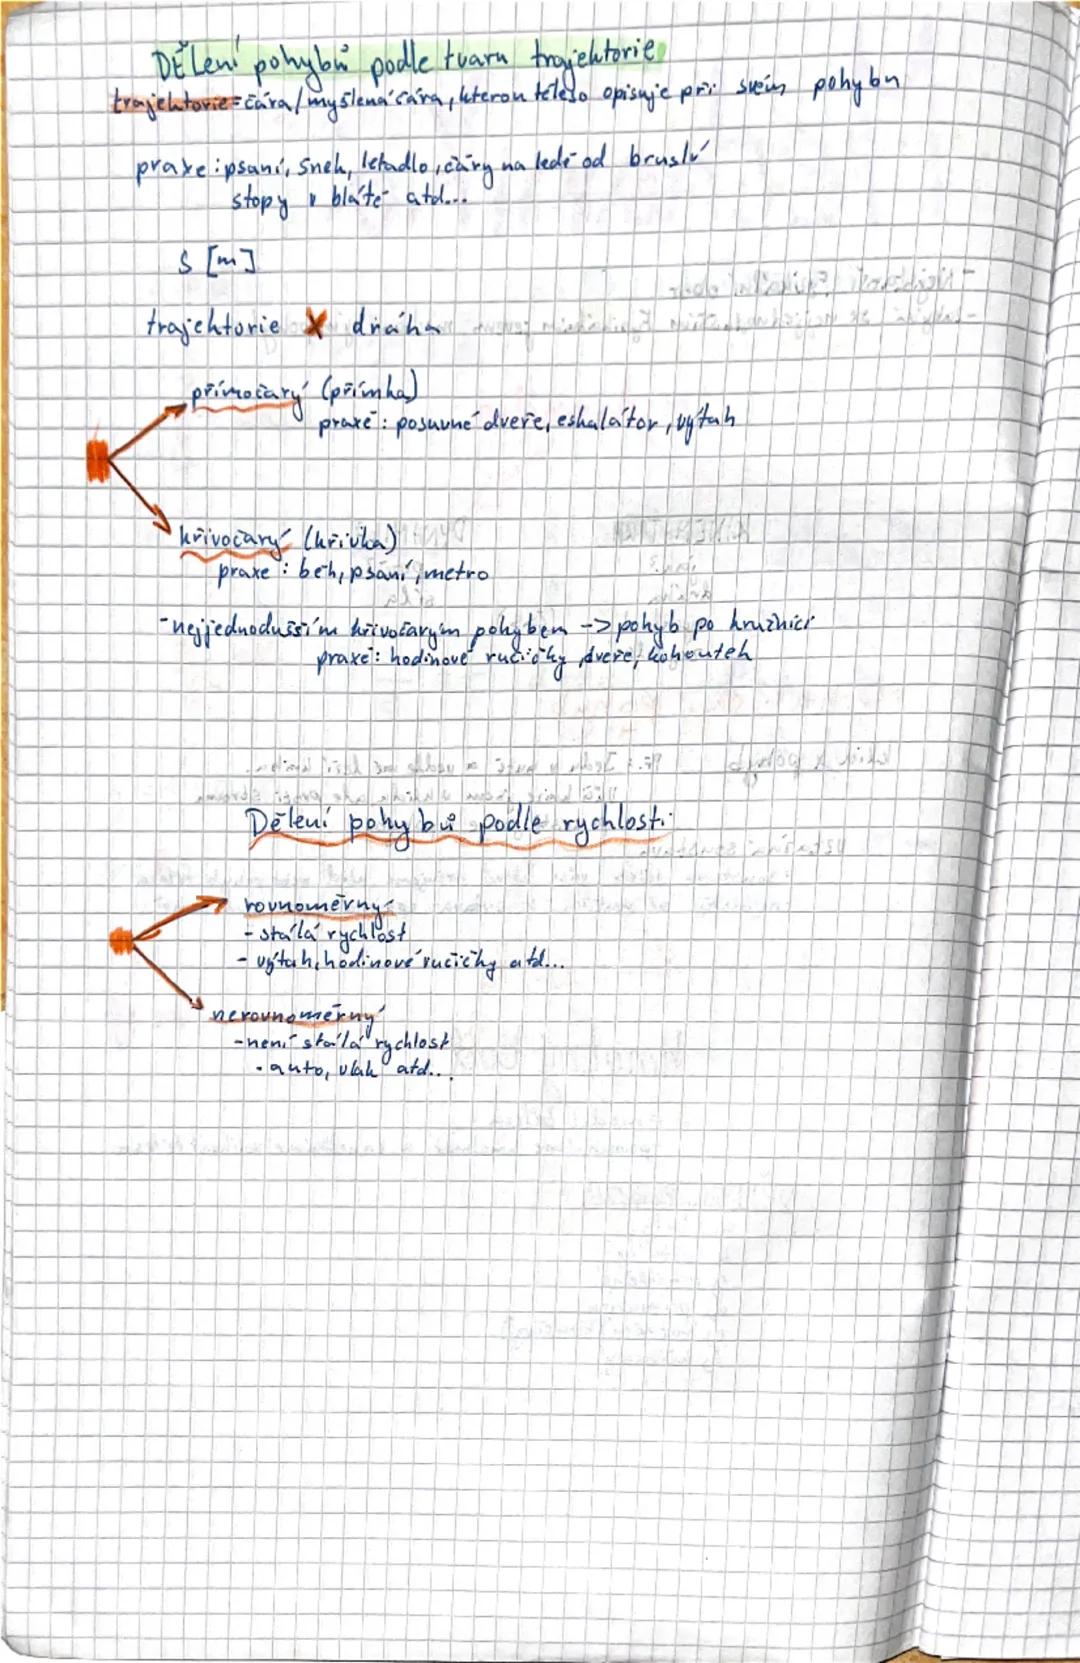 Dělení pohybů podle tvaru trajektorie
trajektorie = čára/myšlená čára, kterou těleso opisuje při svém pohybu
praxe: psaní, šnek, letadlo, čáry na ledě od bruslí
stopy v blátě atd...
s [m]
trajektorie X dráha
přímočarý (přímka)
praxe: posuvné dveře, eskalátor, výtah
křivočarý (křivka)
praxe: běh, psaní, metro
- nejjednodušším křivočarým pohybem -> pohyb po kružnici
praxe: hodinové ručičky, dveře, kohoutek
Dělení pohybů podle rychlosti:
rovnoměrný
- stálá rychlost
- výtah, hodinové ručičky atd...
nerovnoměrný
- není stálá rychlost
- auto, vlak atd...